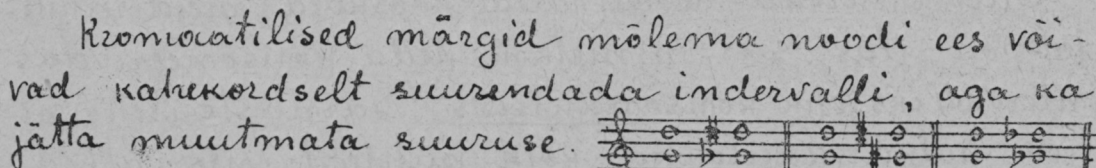 Kromaatilised märgid mõlema noodi ees või-
vad kahekordselt suurendada indervalli, aga ka
jätta muutmata suuruse.